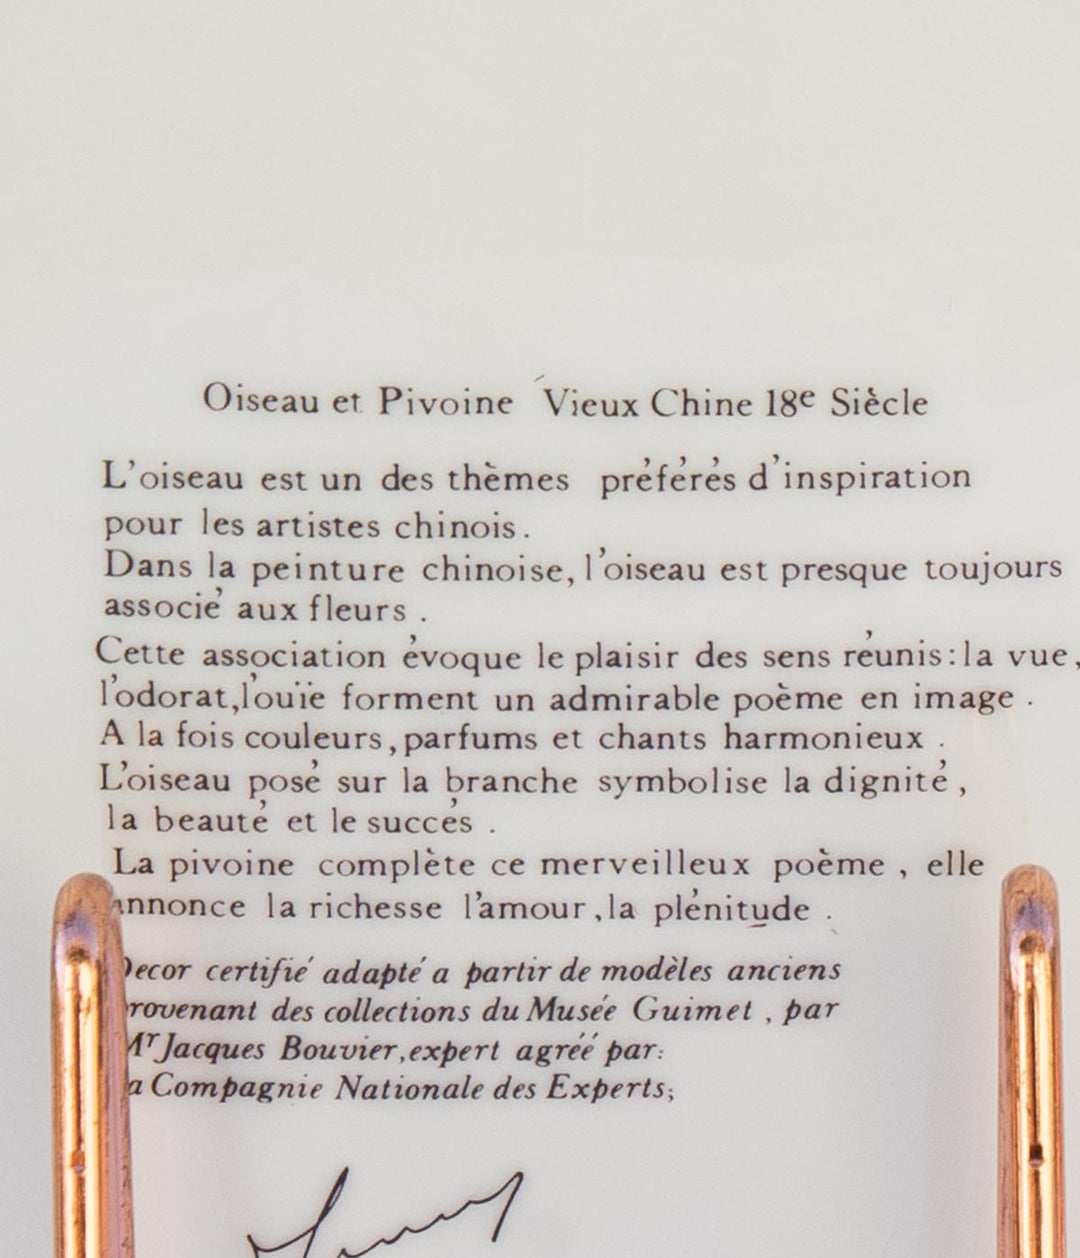 Oiseau et Pivoine Vieux Chine 18e Siècle
L'oiseau est un des thèmes préférés d'inspiration
pour les artistes chinois.
Dans la peinture chinoise, l'oiseau est presque toujours
associé aux fleurs.
Cette association évoque le plaisir des sens réunis: la vue,
l'odorat, l'ouïe forment un admirable poème en image.
A la fois couleurs, parfums et chants harmonieux.
L'oiseau posé sur la branche symbolise la dignité,
la beauté et le succés.
La pivoine complète ce merveilleux poème, elle
annonce la richesse l'amour, la plénitude.
Decor certifié adapté a partir de modèles anciens
provenant des collections du Musée Guimet, par
Mr Jacques Bouvier, expert agréé par:
la Compagnie Nationale des Experts;